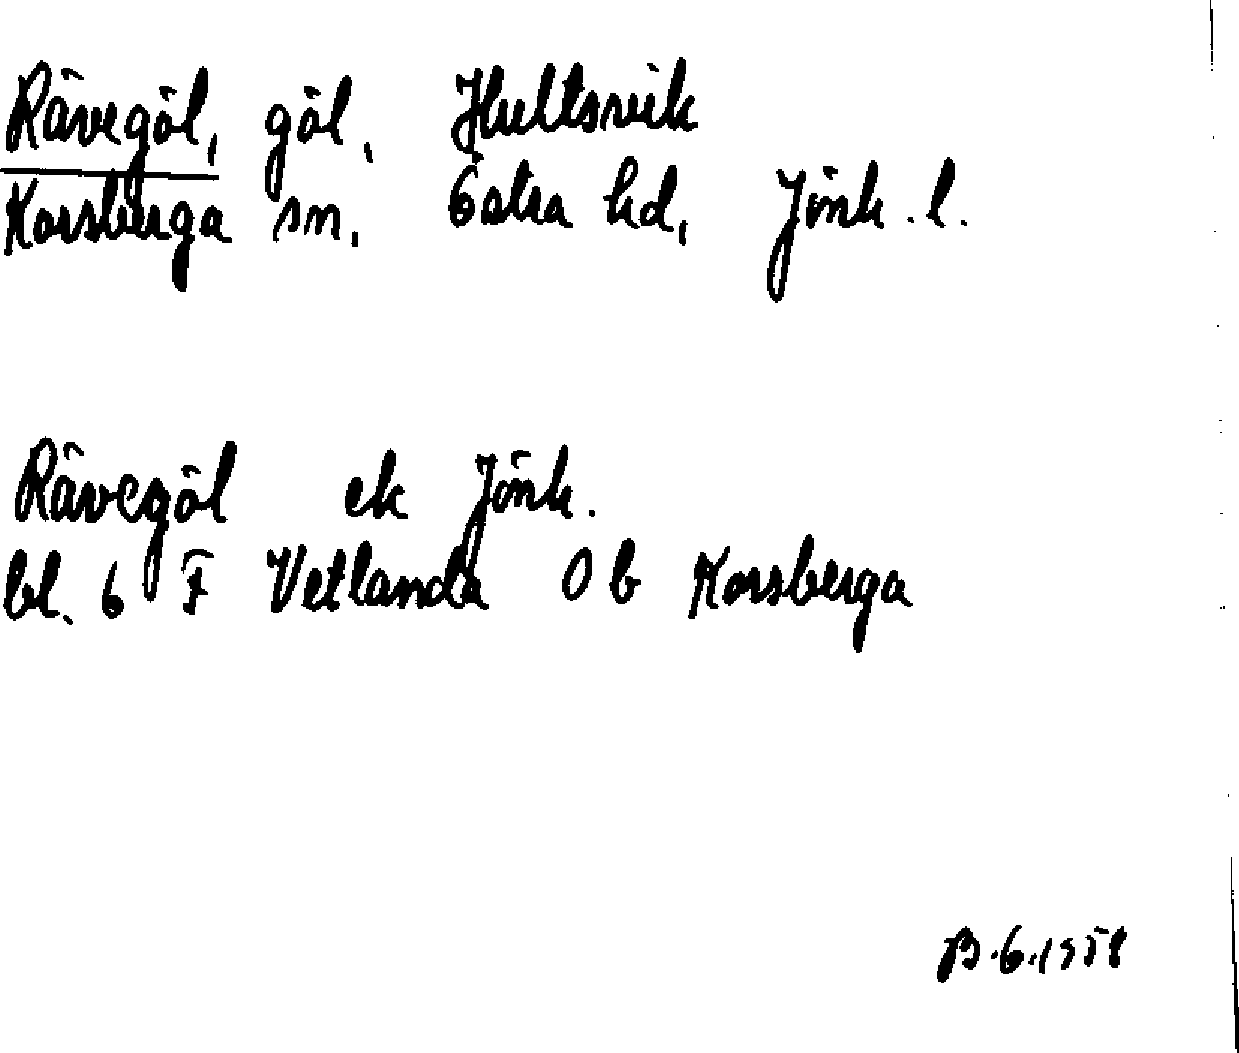 Rävegöl, göl, Hultsvik
Korsberga sn, Östra hd, Jönk. l.
Rävegöl ek Jönk.
bl. 6 F Vetlanda 0 b Korsberga
B.G.1958